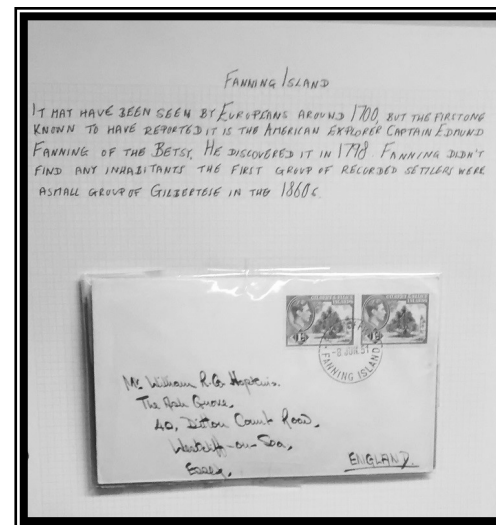 FANNING ISLAND
IT MAT HAVE BEEN SEEN BY EUROPEANS AROUND 1700, BUT THE FIRSTONE
KNOWN TO HAVE REPORTED IT IS THE AMERICAN EXPLORER CAPTAIN EDMUND
FANNING OF THE BETSY. HE DISCOVERED IT IN 1798. FANNING DIDN'T
FIND ANY INHABITANTS THE FIRST GROUP OF RECORDED SETTLERS WERE
ASMALL GROUP OF GILBERTESE IN THE 1860s.
GILBERT & ELLICE
ISLANDS
1D
GILBERT & ELLICE
ISLANDS
1D
-8 JUN. 51
FANNING ISLAND
Mr. William R.G. Hopkins.
The Ash Grove,
40, Ditton Court Road,
Westcliff-on-Sea,
Essex,
ENGLAND.